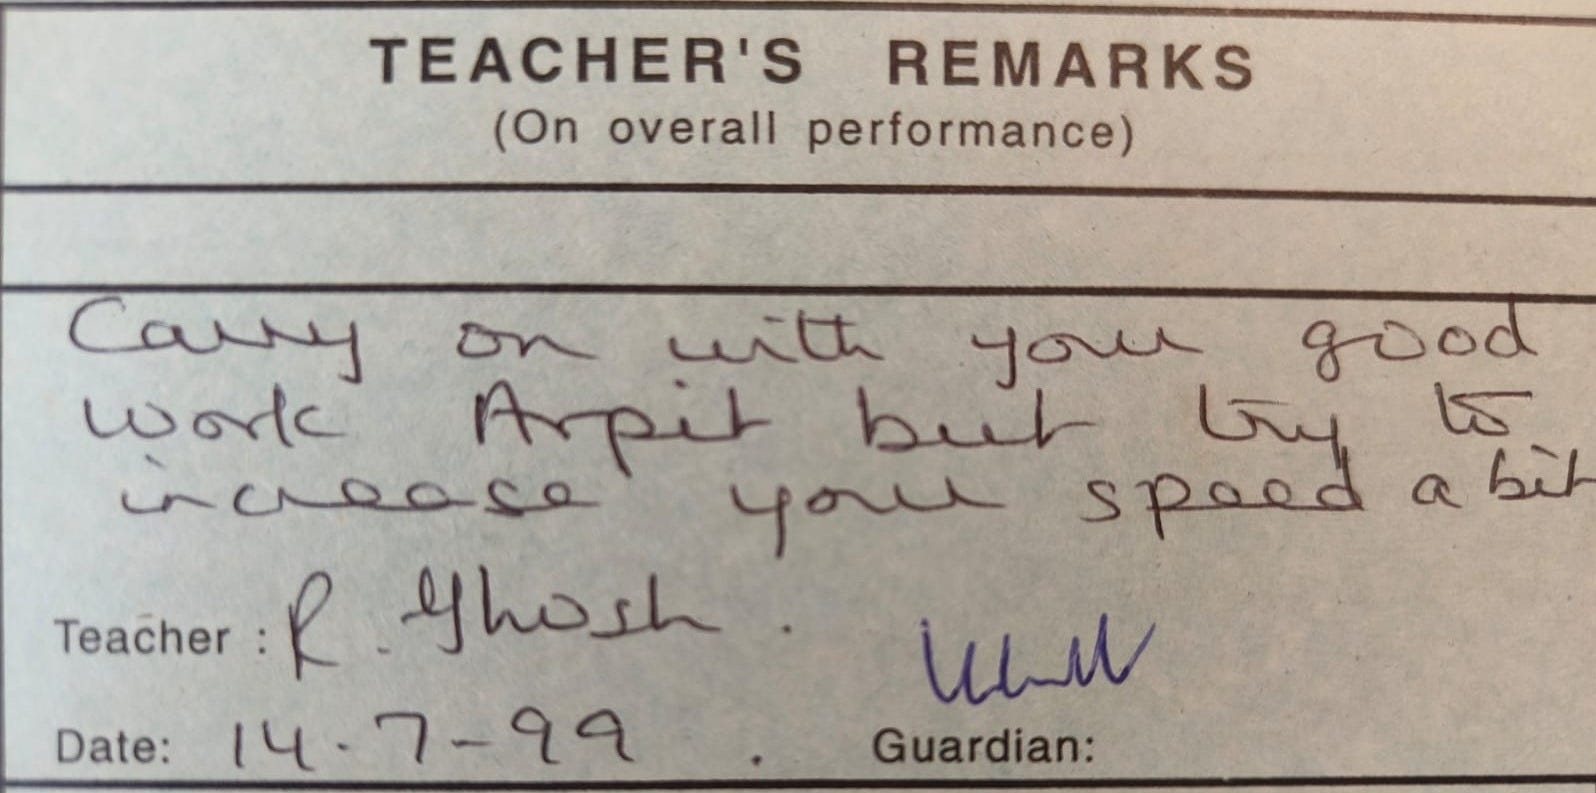 TEACHER'S REMARKS
(On overall performance)
Carry on with your good
work Arpit but try to
increase your speed a bit
Teacher : R. Ghosh.
Date: 14.7-99. Guardian: